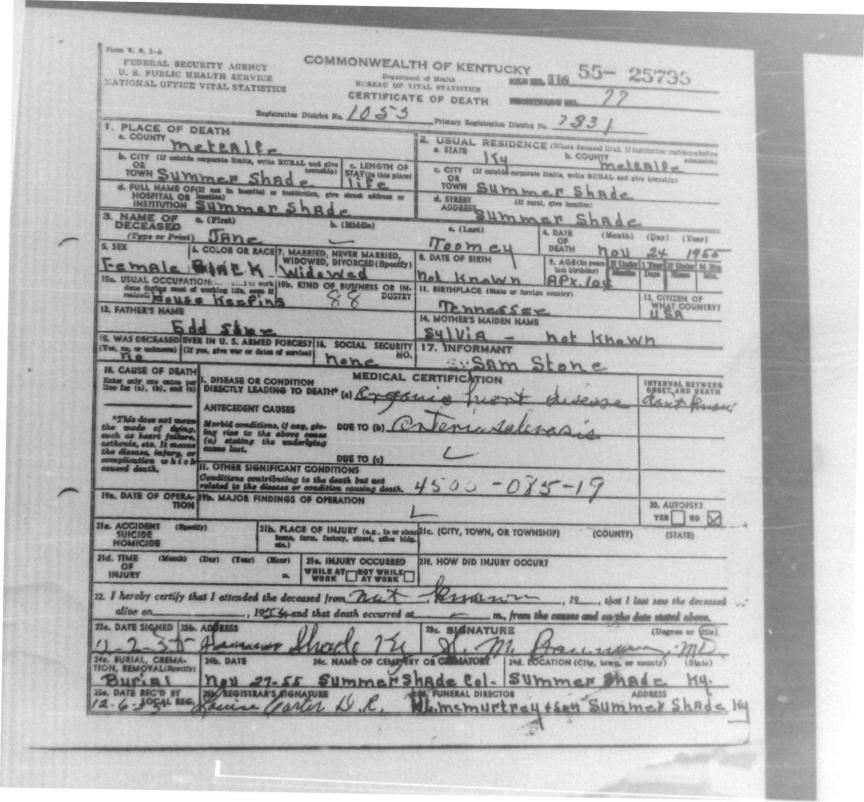 Form V. S. 1-A
FEDERAL SECURITY AGENCY
U. S. PUBLIC HEALTH SERVICE
NATIONAL OFFICE VITAL STATISTICS
COMMONWEALTH OF KENTUCKY
Department of Health
BUREAU OF VITAL STATISTICS
CERTIFICATE OF DEATH
FILE NO. 116 55- 25735
REGISTRAR'S NO. 77
Registration District No. 1055 Primary Registration District No. 7831
1. PLACE OF DEATH
a. COUNTY Metcalfe
2. USUAL RESIDENCE (Where deceased lived. If institution: residence before admission)
a. STATE Ky b. COUNTY Metcalfe
b. CITY (If outside corporate limits, write RURAL and give township) OR TOWN Summer Shade
c. LENGTH OF STAY (in this place) life
c. CITY (If outside corporate limits, write RURAL and give township) OR TOWN Summer Shade
d. FULL NAME OF (If not in hospital or institution, give street address or location) HOSPITAL OR INSTITUTION Summer Shade
d. STREET (If rural, give location) ADDRESS Summer Shade
3. NAME OF DECEASED (Type or Print)
a. (First) Jane
b. (Middle)
c. (Last) Toomey
4. DATE OF DEATH (Month) (Day) (Year) Nov 24 1955
5. SEX Female
6. COLOR OR RACE Black
7. MARRIED, NEVER MARRIED, WIDOWED, DIVORCED (Specify) Widowed
8. DATE OF BIRTH Not Known
9. AGE (In years last birthday) Apx. 104
If Under 1 Year Months Days If Under 24 Hrs. Hours Min.
10a. USUAL OCCUPATION work done during most of working life, even if retired) House Keeping
10b. KIND OF BUSINESS OR INDUSTRY 88
11. BIRTHPLACE (State or foreign country) Tennessee
12. CITIZEN OF WHAT COUNTRY? USA
13. FATHER'S NAME Edd
14. MOTHER'S MAIDEN NAME Sylvia - not Known
15. WAS DECEASED EVER IN U. S. ARMED FORCES? (Yes, no, or unknown) (If yes, give war or dates of service) No
16. SOCIAL SECURITY NO. None
17. INFORMANT Sam Stone
18. CAUSE OF DEATH
Enter only one cause per line for (a), (b), and (c)
*This does not mean the mode of dying, such as heart failure, asthenia, etc. It means the disease, injury, or complication which caused death.
MEDICAL CERTIFICATION
I. DISEASE OR CONDITION DIRECTLY LEADING TO DEATH* (a) Organic heart disease
INTERVAL BETWEEN ONSET AND DEATH
ANTECEDENT CAUSES
Morbid conditions, if any, giving rise to the above cause (a) stating the underlying cause last.
DUE TO (b) arteriosclerosis
DUE TO (c)
II. OTHER SIGNIFICANT CONDITIONS
Conditions contributing to the death but not related to the disease or condition causing death. 4500-085-19
19a. DATE OF OPERATION
19b. MAJOR FINDINGS OF OPERATION
20. AUTOPSY? YES NO
21a. ACCIDENT (Specify) SUICIDE HOMICIDE
21b. PLACE OF INJURY (e.g., in or about home, farm, factory, street, office bldg., etc.)
21c. (CITY, TOWN, OR TOWNSHIP) (COUNTY) (STATE)
21d. TIME OF INJURY (Month) (Day) (Year) (Hour) m.
21e. INJURY OCCURRED WHILE AT WORK NOT WHILE AT WORK
21f. HOW DID INJURY OCCUR?
22. I hereby certify that I attended the deceased from not known, 19__, that I last saw the deceased
alive on ____, 1954 and that death occurred at ____ m., from the causes and on the date stated above.
23a. DATE SIGNED 12-2-55
23b. ADDRESS Summer Shade Ky
23c. SIGNATURE (Degree or title) MD
24a. BURIAL, CREMATION, REMOVAL (Specify) Burial
24b. DATE Nov 27-55
24c. NAME OF CEMETERY OR CREMATORY Summer Shade Col.
24d. LOCATION (City, town, or county) (State) Summer Shade Ky.
25a. DATE REC'D BY LOCAL REG. 12-6-55
25b. REGISTRAR'S SIGNATURE Louise Carter D.R.
26. FUNERAL DIRECTOR ADDRESS McMurtrey & Son Summer Shade Ky